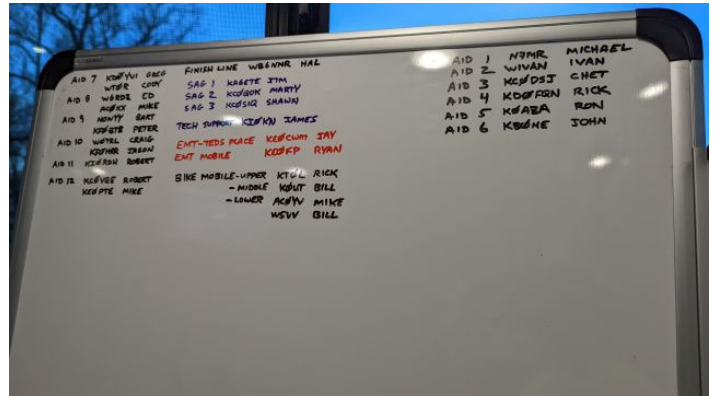 AID 7 KDØYVI GREG
WTØR CODY
AID 8 WGRDZ ED
ACØXX MIKE
AID 9 NOWYY BART
PETER
AID 10 CRAIG
JASON
AID 11 ROBERT
AID 12 KCØVBE ROBERT
KEØPTE MIKE
FINISH LINE WB6NNR HAL
SAG 1 KAGETE JIM
SAG 2 KCØQOK MARTY
SAG 3 KCØSIQ SHAWN
TECH SUPPORT KIØKN JAMES
EMT-TEDS PLACE KEØCWM JAY
EMT MOBILE KEØFP RYAN
BIKE MOBILE-UPPER KTØL RICK
-MIDDLE KØUT BILL
-LOWER ACØYV MIKE
WSVV BILL
AID 1 N7MR MICHAEL
AID 2 WIVAN IVAN
AID 3 KCØDSJ CHET
AID 4 KDØFQN RICK
AID 5 KØAZA RON
AID 6 KBØNE JOHN